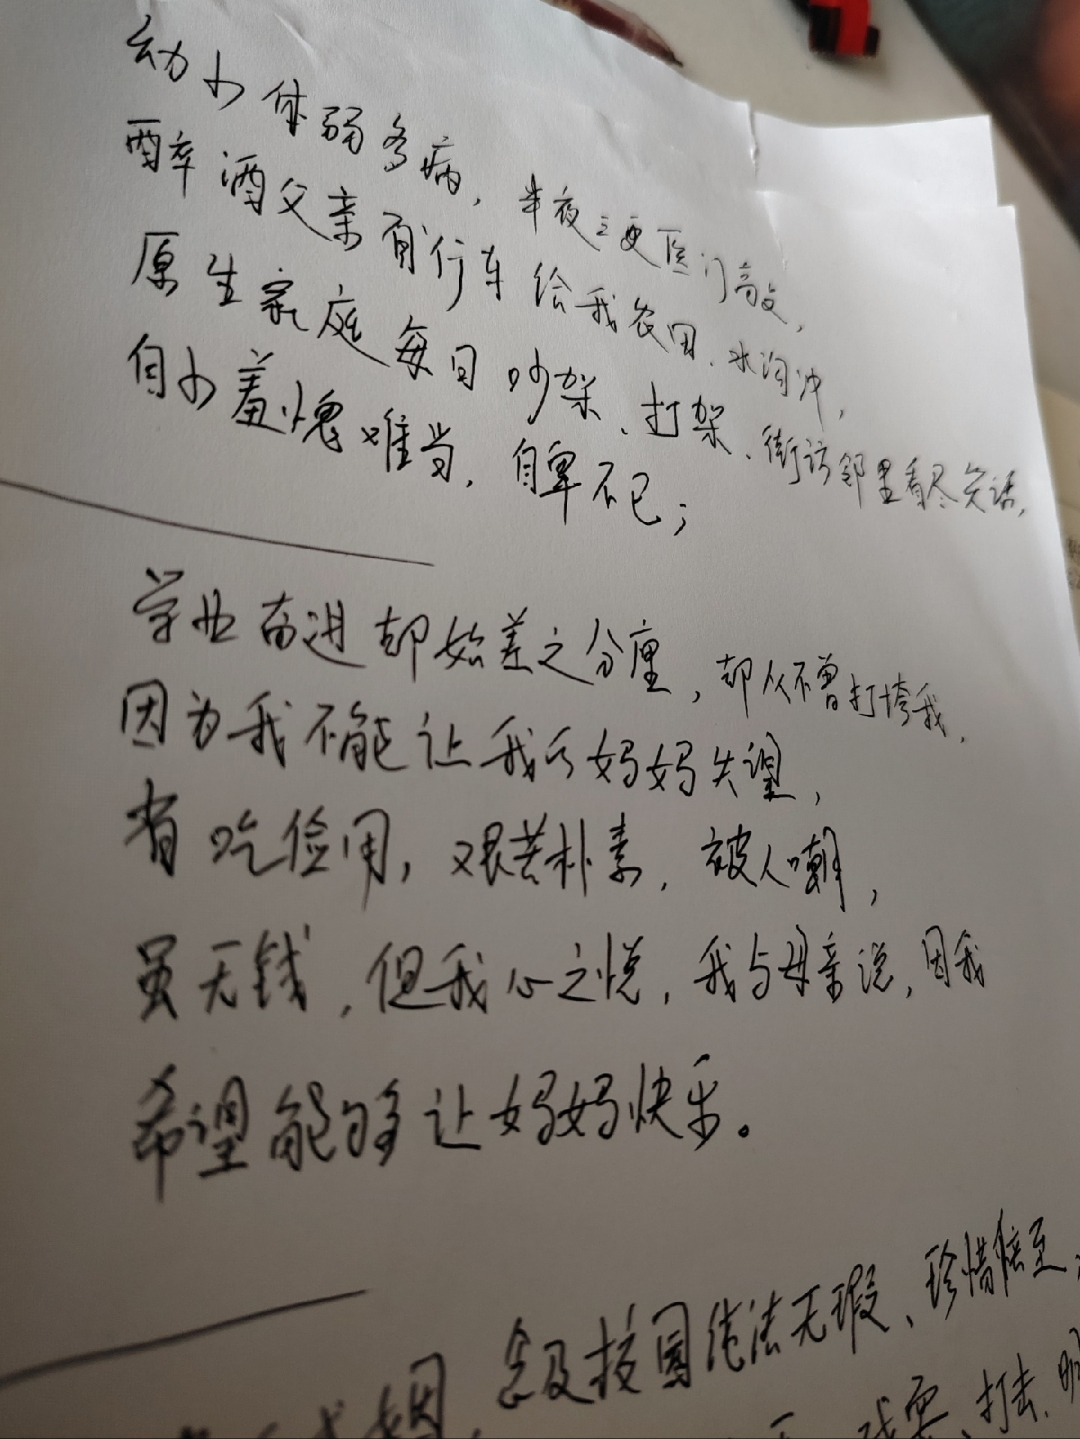 幼小体弱多病，半夜三更医门高敲，
醉酒父亲自行车给我农田、水沟冲，
原生家庭每日吵架、打架、街访邻里看尽笑话，
自小羞愧难当，自卑不已；
学业奋进却始差之分厘，却从不曾打垮我，
因为我不能让我的妈妈失望，
省吃俭用，艰苦朴素，被人嘲，
虽无钱，但我心之悦，我与母亲说，因我
希望能够让妈妈快乐。
念及校园纯洁无瑕、珍惜倍至，
打击、